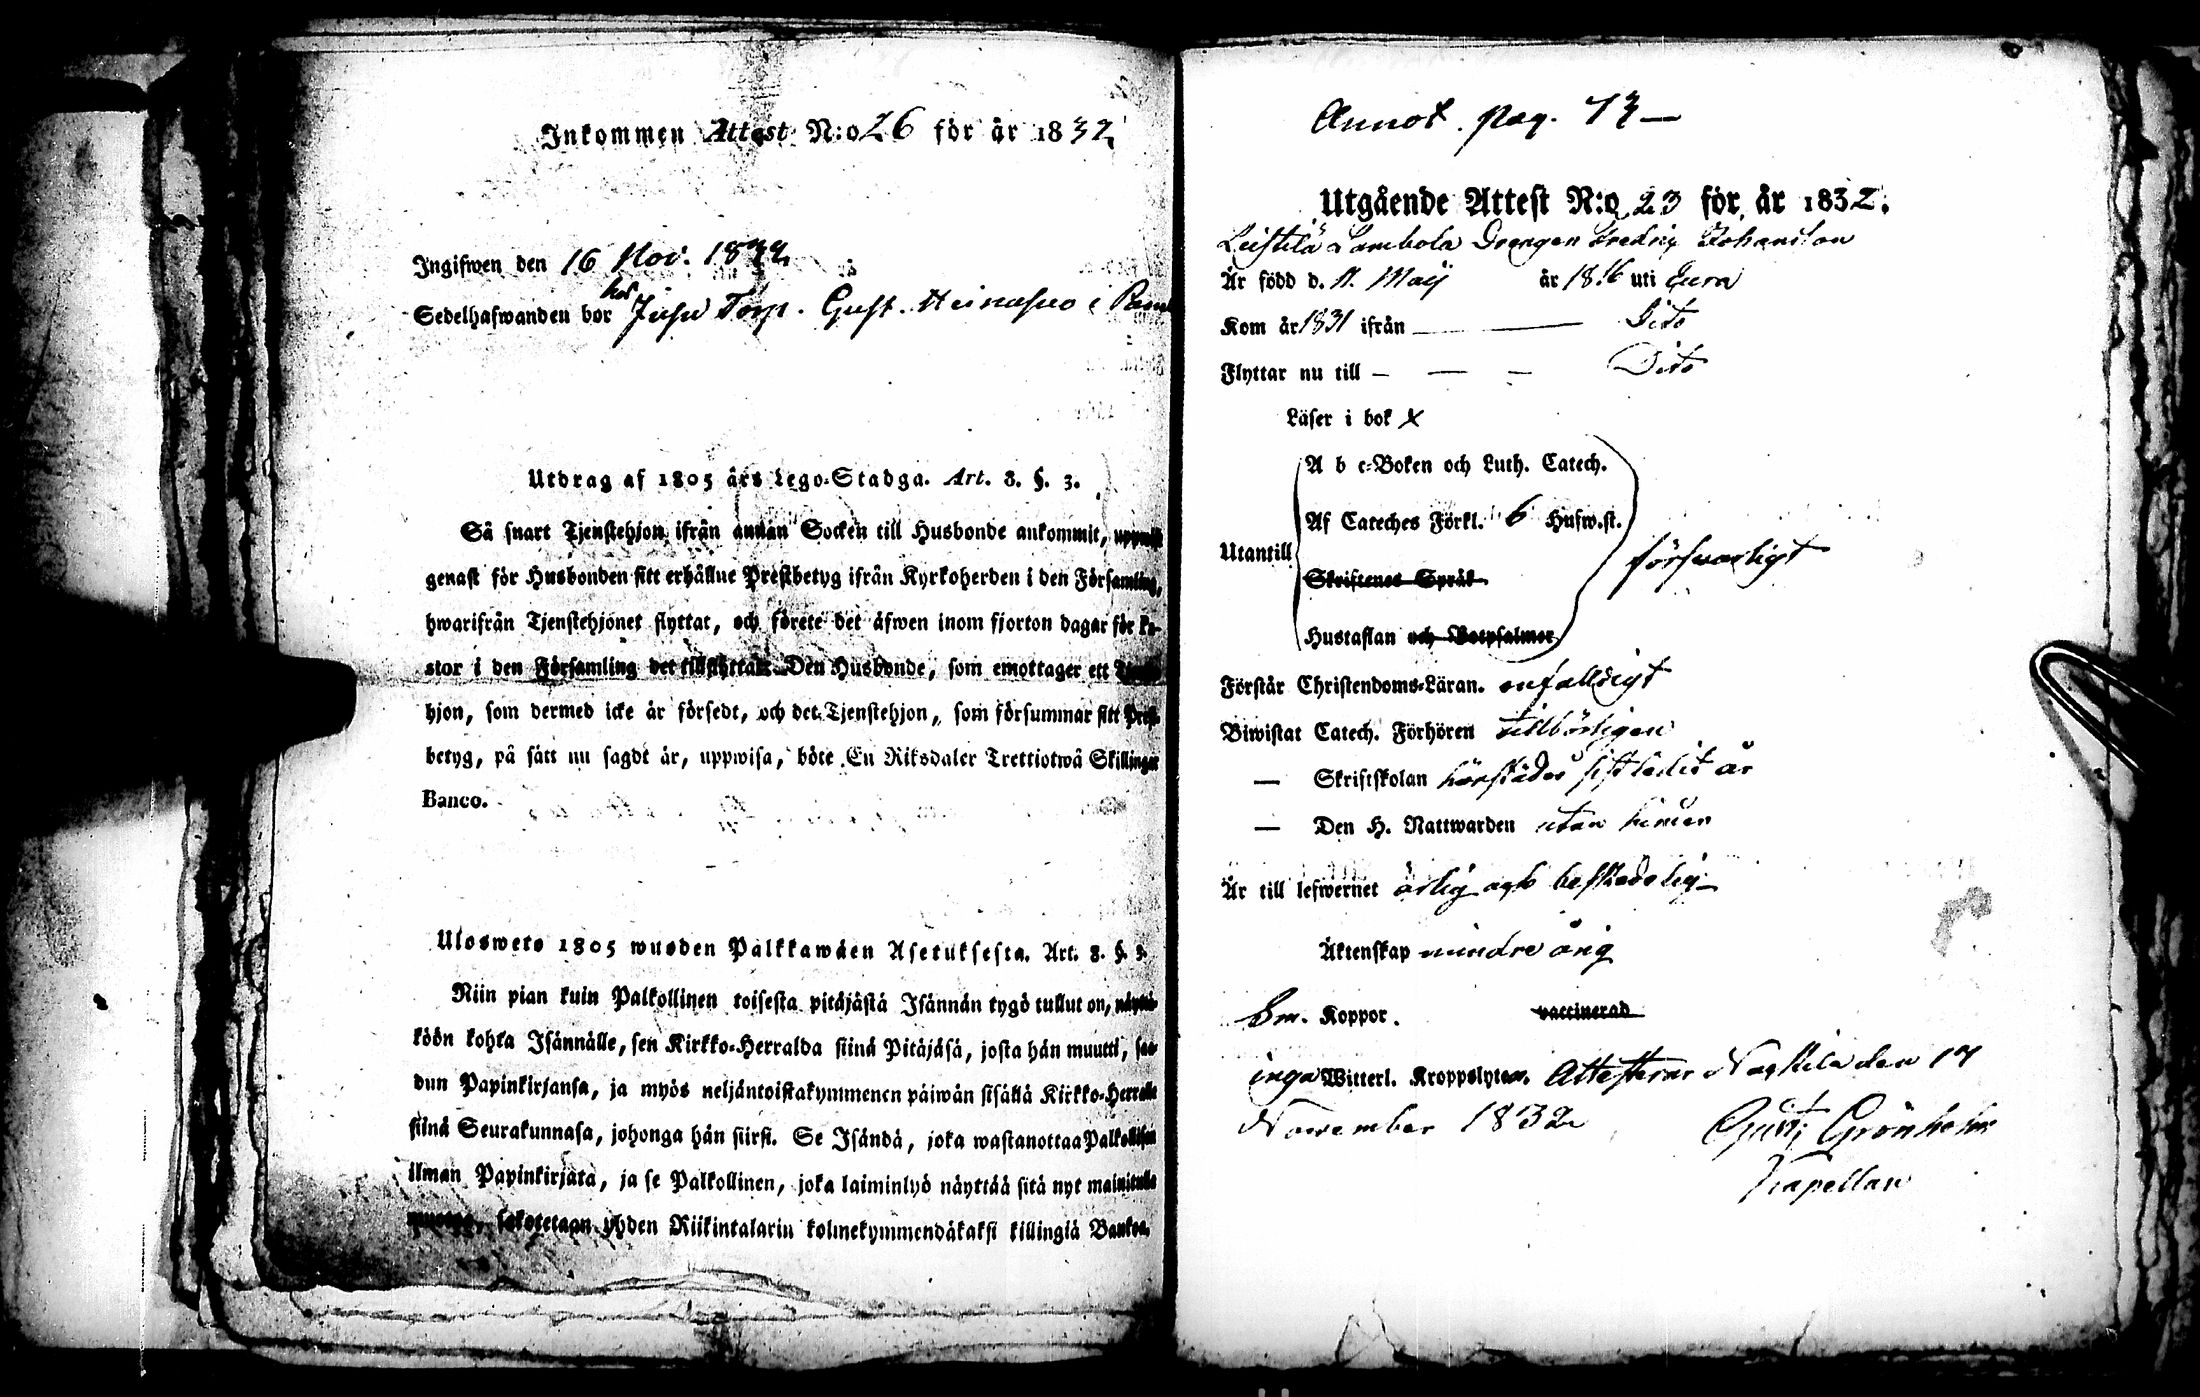 Inkommen Attest N:o 26 för år 1832
Ingifwen den 16 Nov. 1832.
hos
Sedelhafwanden bor Jusu Torp. Gust. Heinasuo i
Utdrag af 1805 års Lego-Stadga. Art. 8. §. 3.
Så snart Tjenstehjon ifrån annan Socken till Husbonde ankommit,
genast för Husbonden sitt erhållne Prestbetyg ifrån Kyrkoherden i den Församling,
hwarifrån Tjenstehjonet flyttat, och förete det äfwen inom fjorton dagar för Pa-
stor i den Församling det tillflyttat. Den Husbonde, som emottager ett
hjon, som dermed icke är försedt, och det Tjenstehjon, som försummar sitt Prest-
betyg, på sätt nu sagdt är, uppwisa, böte En Riksdaler Trettiotwå Skillingar
Banco.
Ulosweto 1805 wuoden Palkkawäen Asetuksesta. Art. 8. §. 3.
Niin pian kuin Palkollinen toisesta pitäjästä Isännän tygö tullut on, näyttä-
köön kohta Isännälle, sen Kirkko-Herralda siinä Pitäjäsä, josta hän muutti, saa-
dun Papinkirjansa, ja myös neljäntoistakymmenen päiwän sisällä Kirkko-Herralle
siinä Seurakunnasa, johonga hän siirsi. Se Isändä, joka wastanottaa Palkollisen
ilman Papinkirjata, ja se Palkollinen, joka laiminlyö näyttää sitä nyt mainitulla
muotoa, sakotetaan yhden Riikintalarin kolmekymmendäkaksi killingiä Bankoa.
Annot. pag. 73 —
Utgående Attest N:o 23 för år 1832.
Leistilä Lambola Drengen Fredrig Johansson
Är född d. 11. Maij år 1816 uti Eura
Kom år 1831 ifrån — Dito
Flyttar nu till — — — Dito
Läser i bok x
A b c-Boken och Luth. Catech.
Af Cateches Förkl. 6 Hufw.st.
Utantill
Skriftenes Språk
försvarligt
Hustaflan och Botpsalmer
Förstår Christendoms-Läran. enfalldigt
Biwistat Catech. Förhören tillbörligen
— Skriftskolan härstädes sistledit år
— Den H. Nattwarden utan hinder
Är till lefwernet ärlig och beskedelig
Äktenskap mindre årig
Em. Koppor. vaccinerad
inga Witterl. Kroppslyten. Attesterar Nakkila den 14
November 1832
Gust: Grönholm
Kapellan